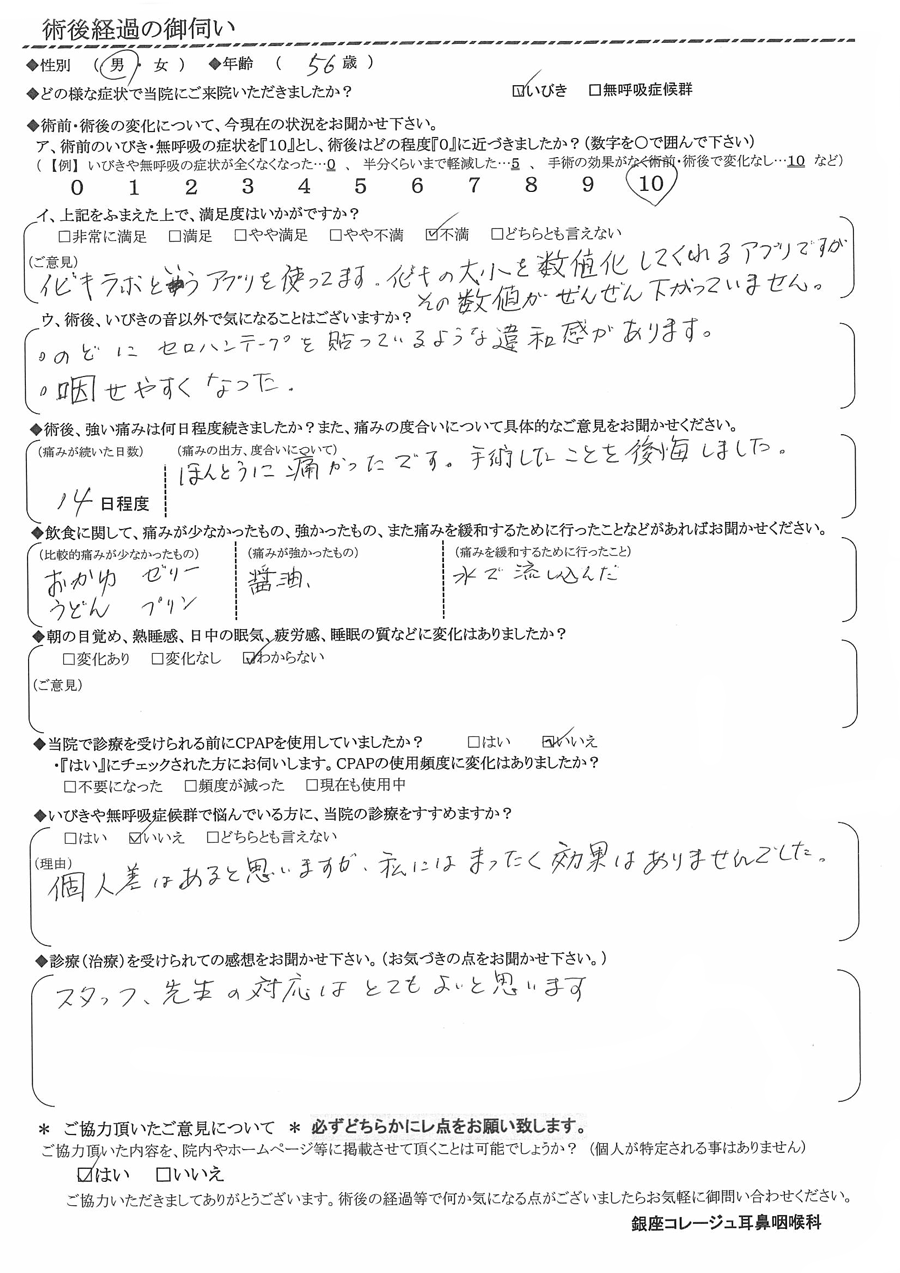 術後経過の御伺い
◆性別 ( 男 ・ 女 ) ◆年齢 ( 56 歳 )
◆どの様な症状で当院にご来院いただきましたか? ☑いびき □無呼吸症候群
◆術前・術後の変化について、今現在の状況をお聞かせ下さい。
ア、術前のいびき・無呼吸の症状を『10』とし、術後はどの程度『0』に近づきましたか?(数字を○で囲んで下さい)
(【例】 いびきや無呼吸の症状が全くなくなった…0 、 半分くらいまで軽減した…5 、 手術の効果がなく術前・術後で変化なし…10 など)
0 1 2 3 4 5 6 7 8 9 10
イ、上記をふまえた上で、満足度はいかがですか?
□非常に満足 □満足 □やや満足 □やや不満 ☑不満 □どちらとも言えない
(ご意見)
イビキラボと言うアプリを使ってます。イビキの大小を数値化してくれるアプリですが
その数値がぜんぜん下がっていません。
ウ、術後、いびきの音以外で気になることはございますか?
○のどに セロハンテープを貼っているような違和感があります。
○咽せやすくなった。
◆術後、強い痛みは何日程度続きましたか?また、痛みの度合いについて具体的なご意見をお聞かせください。
(痛みが続いた日数) (痛みの出方、度合いについて)
ほんとうに痛かったです。手術したことを後悔しました。
14 日程度
◆飲食に関して、痛みが少なかったもの、強かったもの、また痛みを緩和するために行ったことなどがあればお聞かせください。
(比較的痛みが少なかったもの) (痛みが強かったもの) (痛みを緩和するために行ったこと)
おかゆ ゼリー 醤油、 水で流し込んだ
うどん プリン
◆朝の目覚め、熟睡感、日中の眠気、疲労感、睡眠の質などに変化はありましたか?
□変化あり □変化なし ☑わからない
(ご意見)
◆当院で診療を受けられる前にCPAPを使用していましたか? □はい ☑いいえ
・『はい』にチェックされた方にお伺いします。CPAPの使用頻度に変化はありましたか?
□不要になった □頻度が減った □現在も使用中
◆いびきや無呼吸症候群で悩んでいる方に、当院の診療をすすめますか?
□はい ☑いいえ □どちらとも言えない
(理由)
個人差はあると思いますが、私にはまったく効果はありませんでした。
◆診療(治療)を受けられての感想をお聞かせ下さい。(お気づきの点をお聞かせ下さい。)
スタッフ、先生の対応はとてもよいと思います
＊ ご協力頂いたご意見について ＊ 必ずどちらかにレ点をお願い致します。
ご協力頂いた内容を、院内やホームページ等に掲載させて頂くことは可能でしょうか? (個人が特定される事はありません)
☑はい □いいえ
ご協力いただきましてありがとうございます。術後の経過等で何か気になる点がございましたらお気軽に御問い合わせください。
銀座コレージュ耳鼻咽喉科